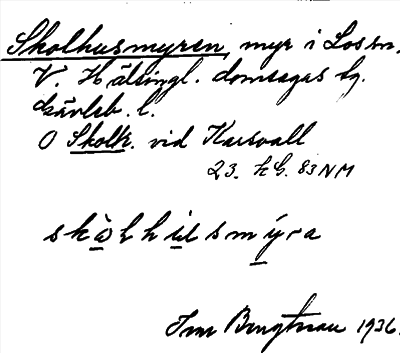 Skolhusmyren, myr i Los sn.
V. Hälsingl. domsagas tg.
Gävleb. l.
O Skolh. vid Karsvall
23. h G. 83 NM
skòlhùsmýra
Ivar Bengtsson 1936.